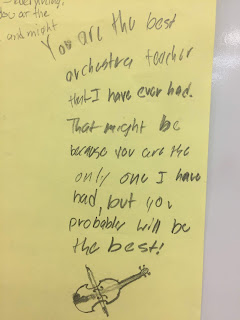 everything.
You ar the
and might
You are the best
orchestra teacher
that I have ever had.
That might be
because you are the
only one I have
had, but you
probably will be
the best!